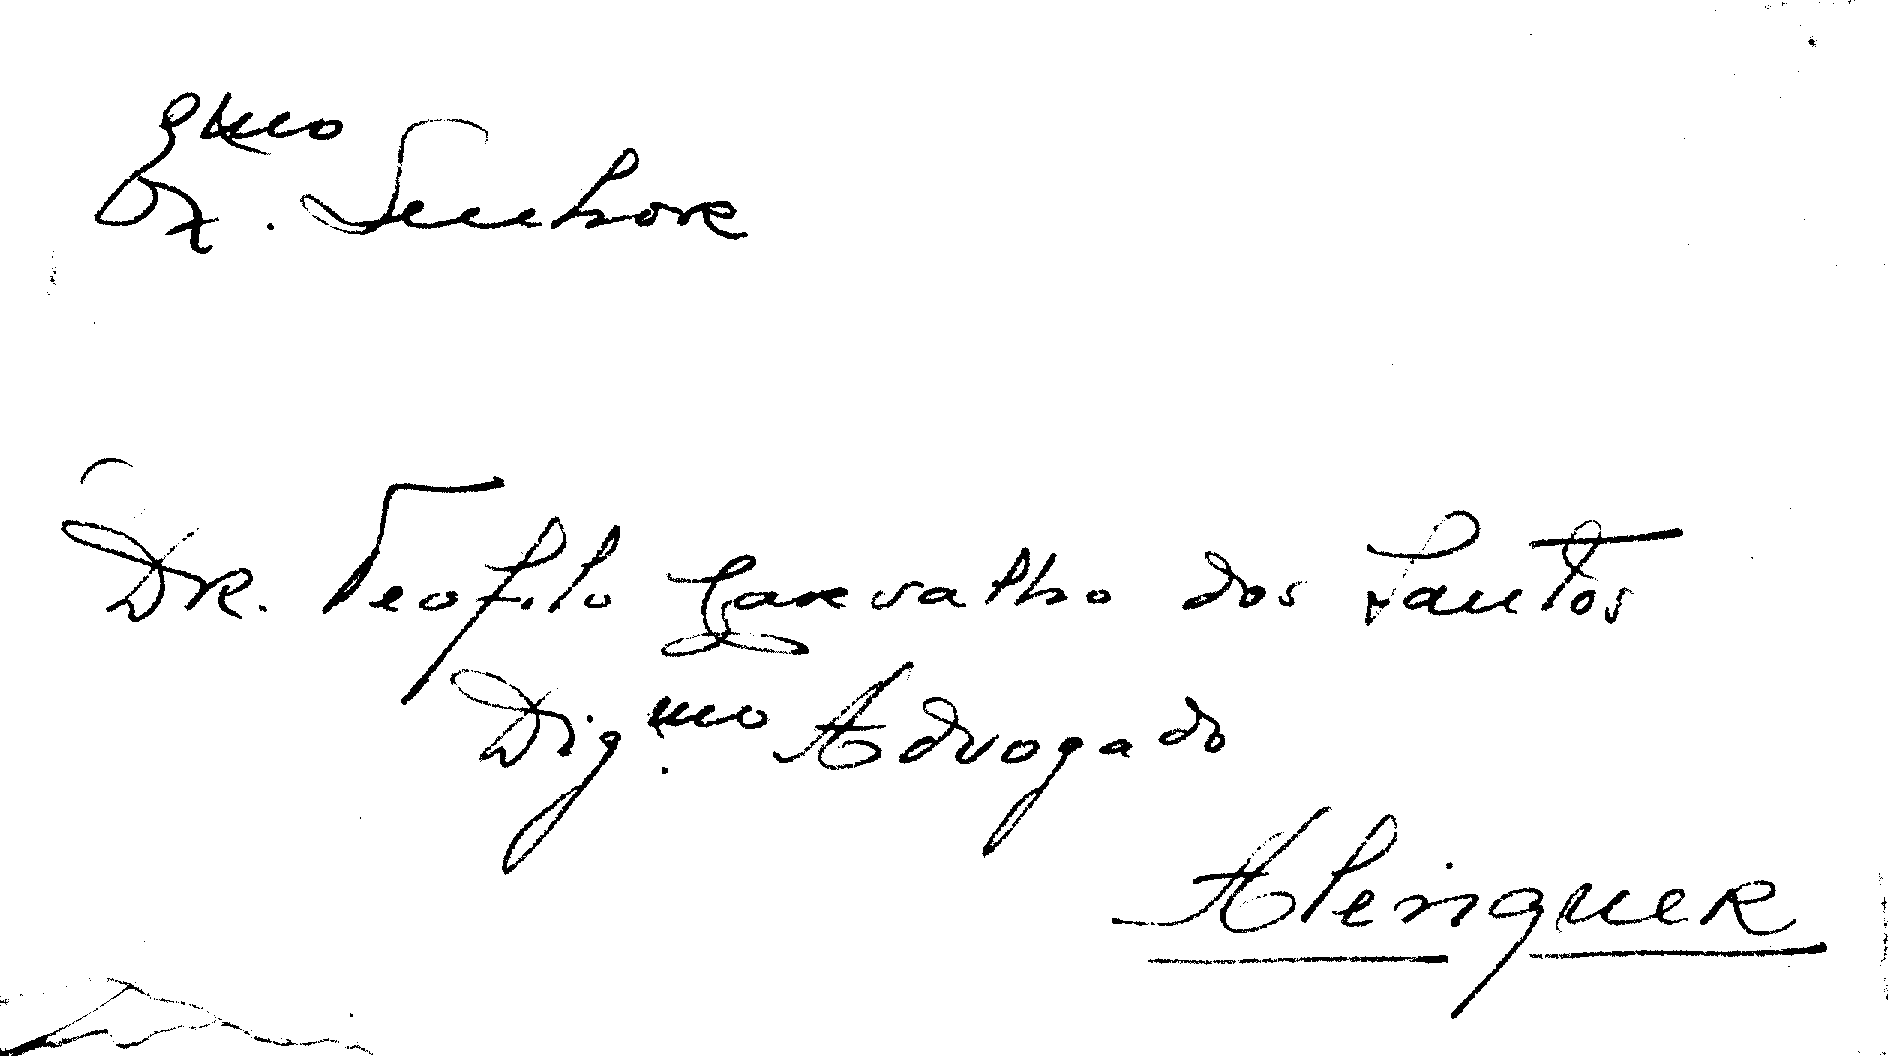 Exmo. Senhor
Dr. Teofilo Carvalho dos Santos
Dig.mo Advogado
Alenquer